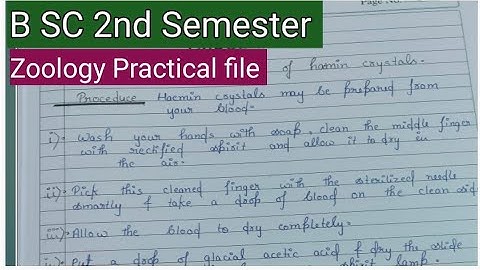 B SC 2nd Semester
Page No.
Zoology Practical file
of hamin crystals.
Procedure Haemin crystals may be prepared from
your blood-
i) Wash your hands with soap, clean the middle finger
with rectified spirit and allow it to dry in
the air.
ii) Prick this cleaned finger with the sterilized needle
smartly & take a drop of blood on the clean
iii) Allow the blood to dry completely.
Put a drop of glacial acetic acid & dry the slide
spirit lamp.